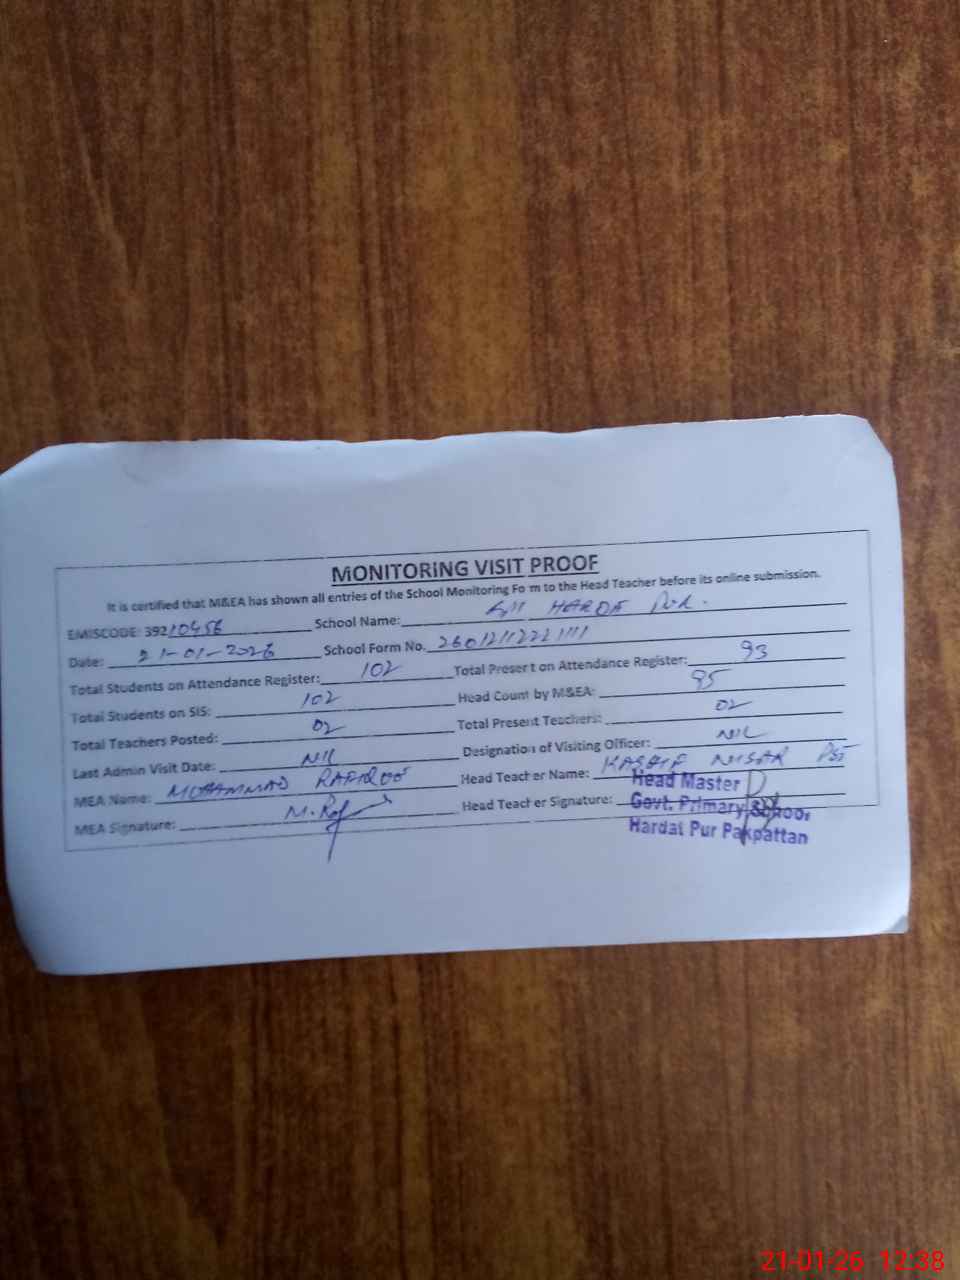 MONITORING VISIT PROOF
It is certified that M&EA has shown all entries of the School Monitoring Form to the Head Teacher before its online submission.
EMISCODE: 39210456 School Name: HARDA PUR.
Date: 21-01-2026 School Form No. 26012112221111
Total Students on Attendance Register: 102 Total Present on Attendance Register: 93
Total Students on SIS: 102 Head Count by M&EA: 95
Total Teachers Posted: 02 Total Present Teachers: 02
Last Admin Visit Date: NIL Designation of Visiting Officer: NIL
MEA Name: MUHAMMAD RAFIQUE Head Teacher Name: KASHIF NISAR PST
MEA Signature: M. Head Teacher Signature:
Head Master
Govt. Primary School
Hardat Pur Pakpattan
21-01-26 12:38